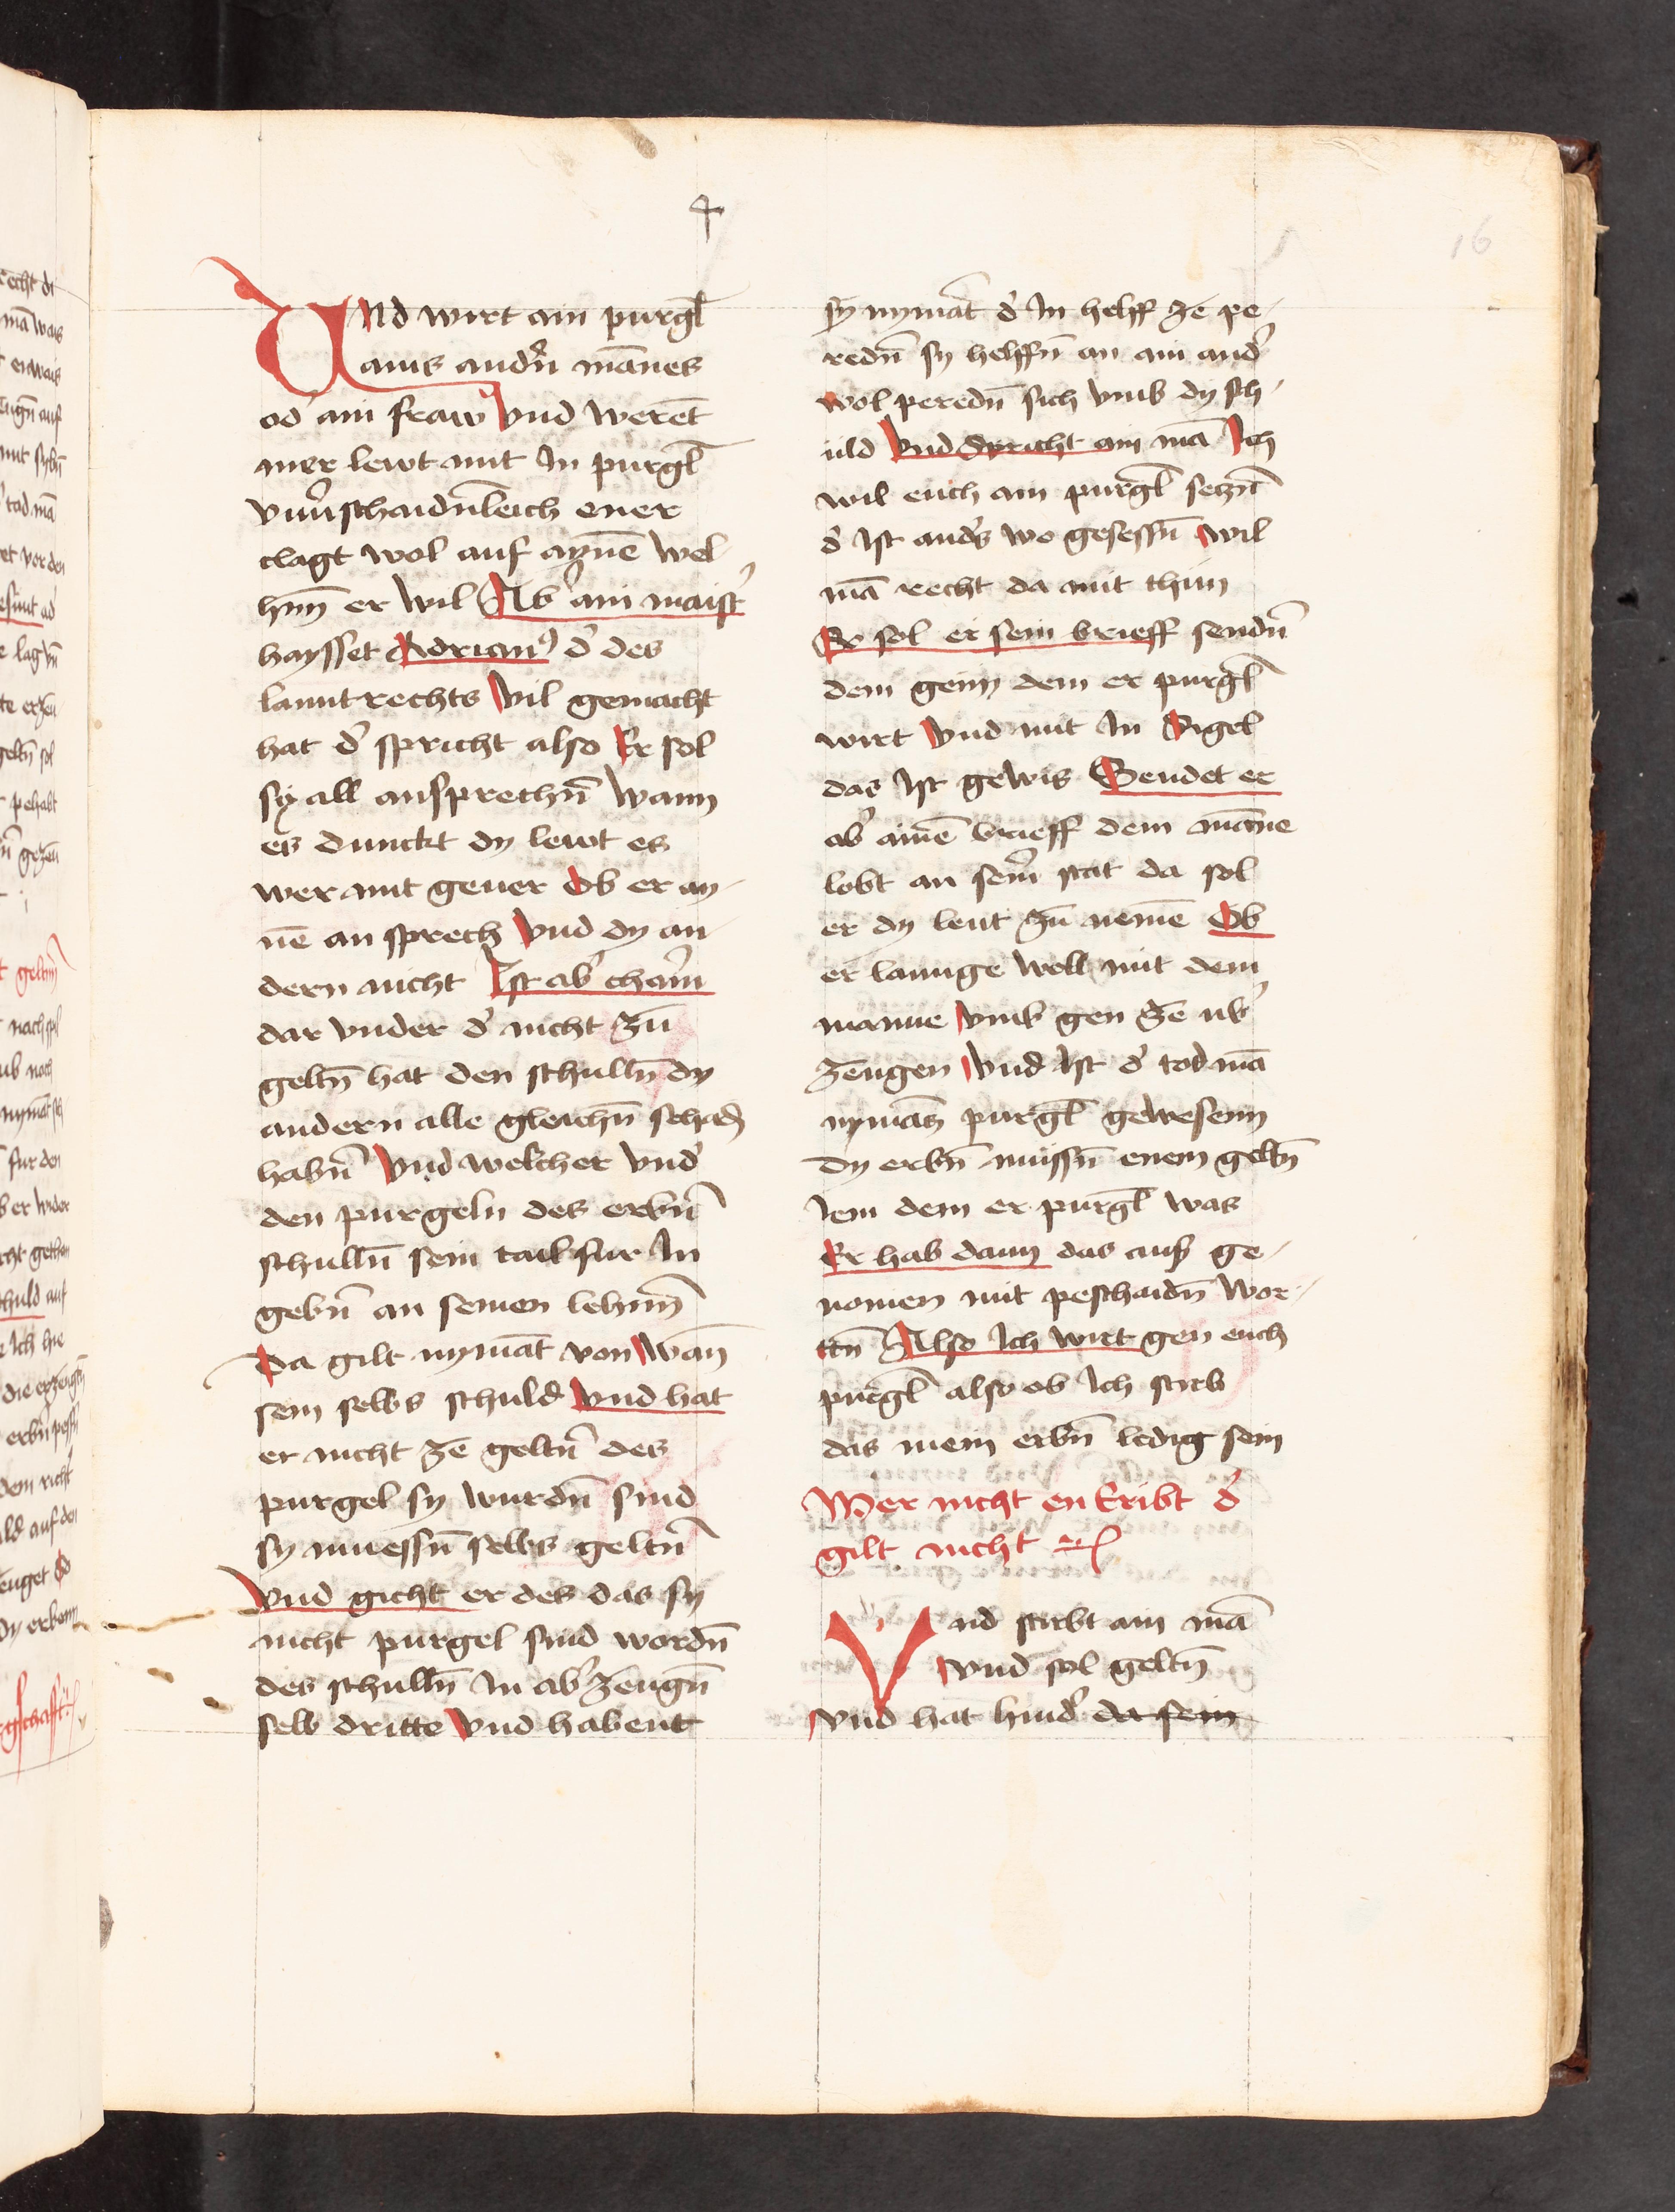 16
Und wirt ain purgl̄
ains and̓n mānes
od̓ ain fraw vnd werēt
mer lewt mit In purgl̄
vnu̓schaidnleich ener
clagt wol auf aynē wel
hm̄ er wil Ab̓ ain maist̓
haysset Adrianꝰ d̓ des
lanntrechts vil gemacht
hat d̓ spricht also Er sol
sy all ansprechn̄ wann
es dunckt dy lewt es
wer mit geuer Ob er ay-
nē an sprech vnd dy an
dern nicht Ist ab̓ chain̓
dar vnder d̓ nicht zū
geltn̄ hat den schulln̄ dy
andern alle gleichn̄ schadn̄
habn̄ vnd welcher vnd̓
den purgeln des erbn̄
schulln̄ sein tail fur In
gebn̄ an seinen lehnn̄
Da gilt nymāt von wān
sein selbs schuld vnd hat
er nicht zē geltn̄ des
purgel sy wurdn̄ sind
sy muessn̄ selbs geltn̄
vnd gicht er des das sy
nicht purgel sind wordn̄
des schulln̄ In ab̓ zeugn̄
selb dritte vnd habent
sy nymāt d̓ In helff ze pe-
redn̄ sy helffn̄ an ain and̓
wol peredn̄ sich vmb dy sch-
uld vnd Spricht ain mā Ich
wil euch ain purgl̄ seczn̄
d̓ Ist and̓s wo gesessn̄ wil
mā recht da mit thun
So sol er sein brieff sendn̄
dem genn dem er purgl̄
wirt vnd mit In Sigel
das Ist gewis Sendet er
ab̓ ainē brieff dem manne
lobt an sein̓ stat da sol
er dy leut zū nemē Ob
er laugne woll mit dem
manne vmb gen ze ub̓
zeugen vnd Ist d̓ tod mā
nymās purgl̄ gewesenn
dy erbn̄ mussn̄ enem geltn̄
Iem dem er purgl̄ was
Er hab dann das auß ge-
nomen mit peschaidn̄ wor-
ttn̄ Also Ich wirt gen euch
purgl̄ also ob Ich stirb
das mein erbn̄ ledig sein
Wer nicht en Eribt d̓
gilt nicht ꝛc
Vnd stirbt ain mā
vnd sol geltn̄
vnd hat hind̓ da sein